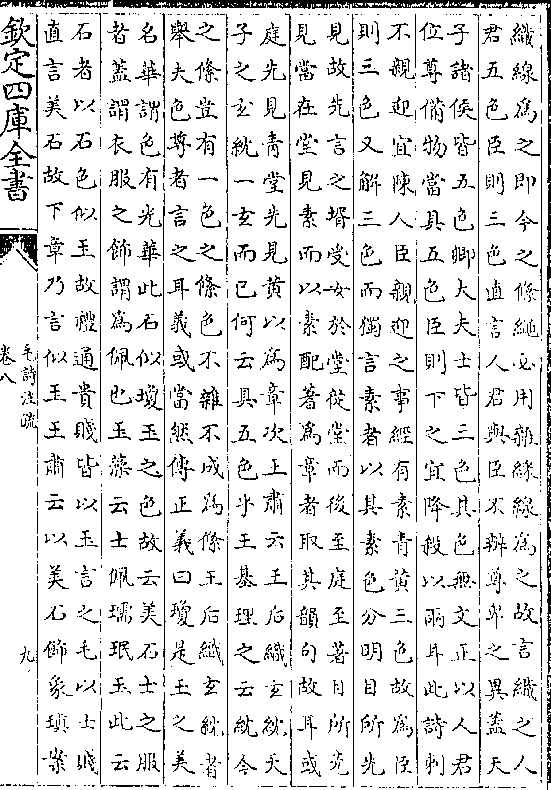 織線為之即今之條繩必用雜綵線為之故言織之人
君五色臣則三色直言人君與臣不辨尊卑之異蓋天
子諸侯皆五色卿大夫士皆三色其色無文正以人君
位尊備物當具五色臣則下之宜降殺以兩耳此詩刺
不親迎宜陳人臣親迎之事經有素青黃三色故為臣
則三色又解三色而獨言素者以其素色分明目所先
見故先言之壻受女於堂從堂而後至庭至著目所先
見當在堂見素而以素配著為章者取其韻句故耳或
庭先見青堂先見黃以為章次王肅云王后織玄紞天
子之玄紞一玄而已何云具五色乎王基理之云紞今
之條豈有一色之條色不雜不成為條王后織玄紞者
舉夫色尊者言之耳義或當然傳正義曰瓊是玉之美
名華謂色有光華此石似瓊玉之色故云美石士之服
者蓋謂衣服之飾謂為佩也玉藻云士佩瓀珉玉此云
石者以石色似玉故禮通貴賤皆以玉言之毛以士賤
直言美石故下章乃言似玉王肅云以美石飾象瑱案
欽定四庫全書
毛詩注疏
卷八
九